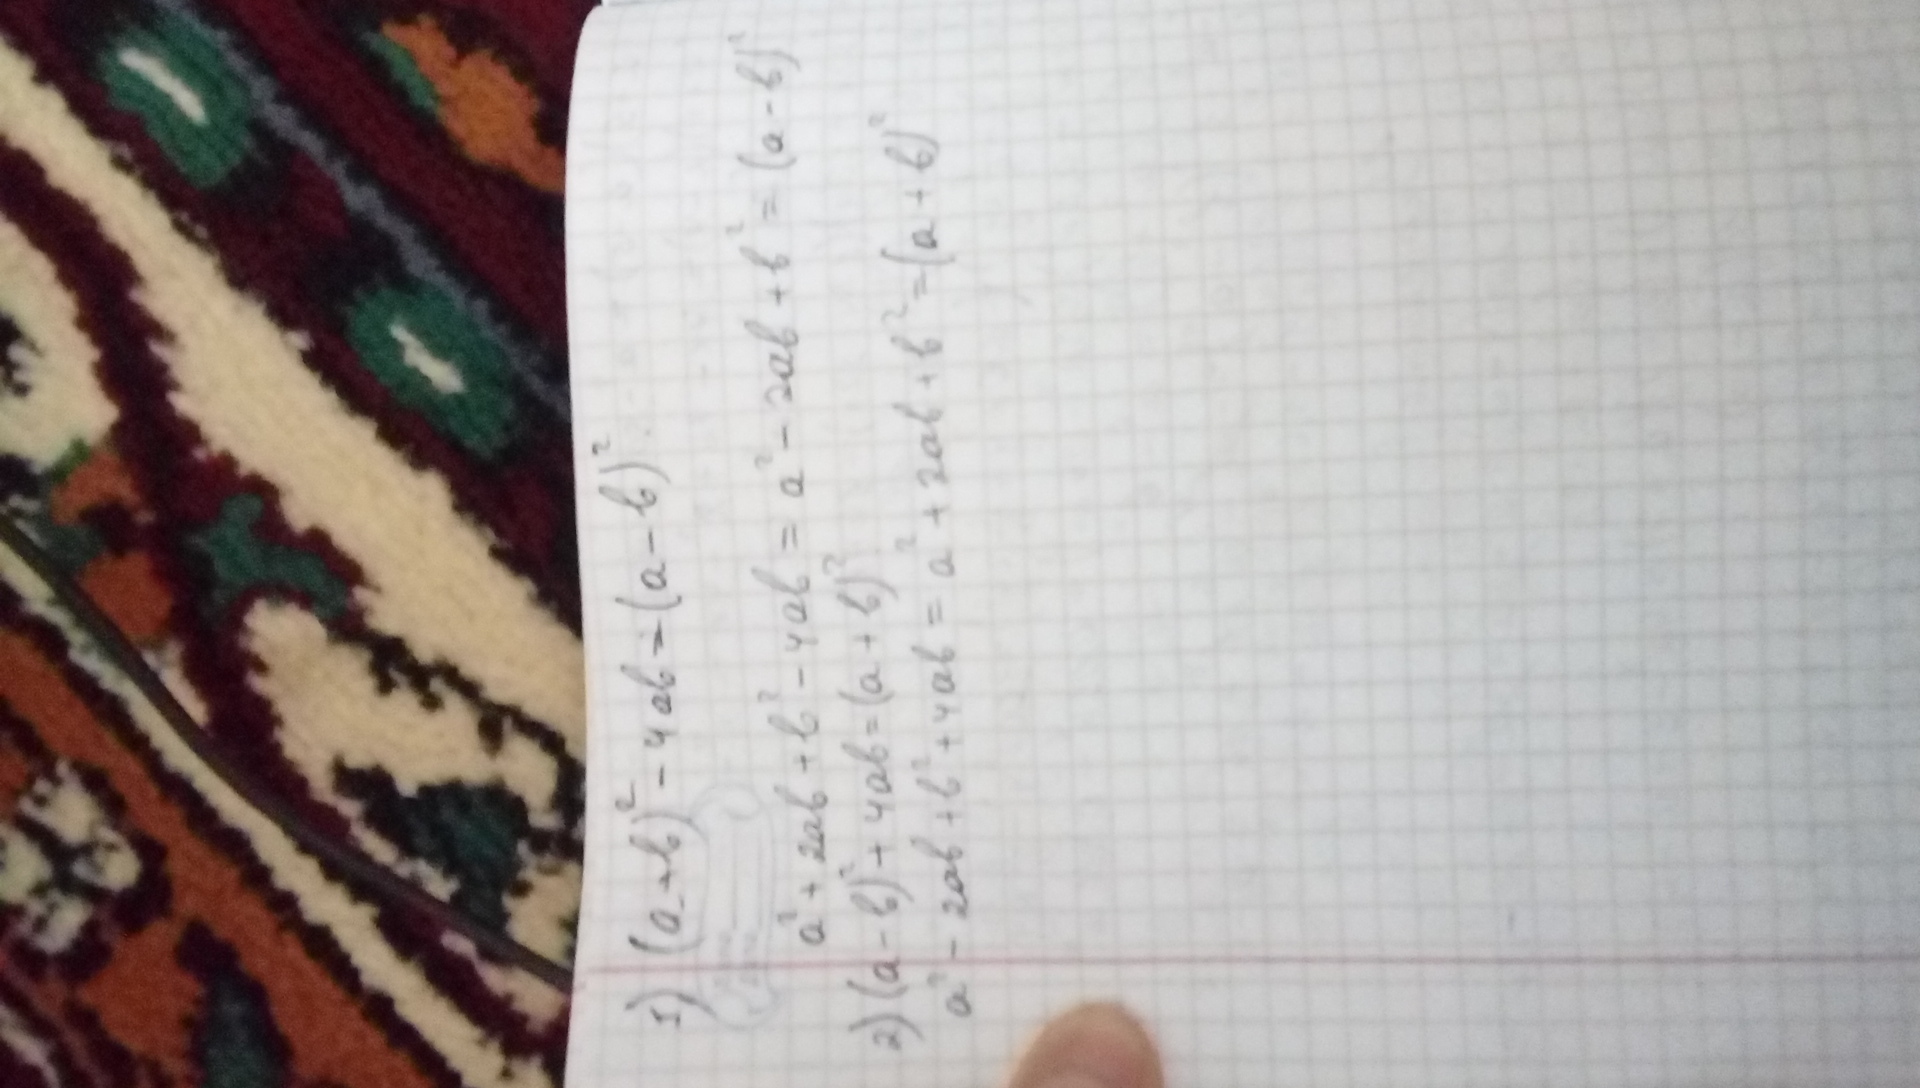 1) (a+b)² - 4ab = (a-b)²
a² + 2ab + b² - 4ab = a² - 2ab + b² = (a-b)²
2) (a-b)² + 4ab = (a+b)²
a² - 2ab + b² + 4ab = a² + 2ab + b² = (a+b)²